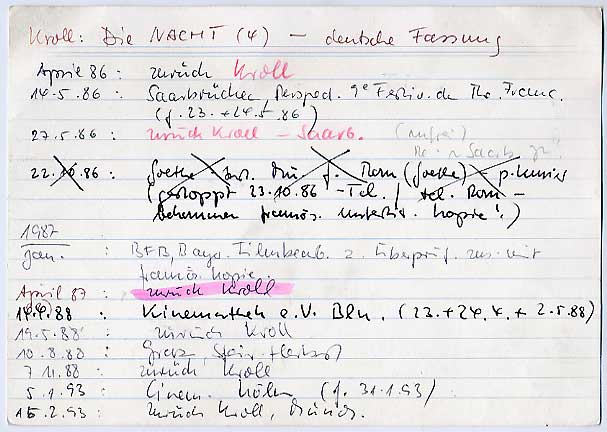 Kroll: Die NACHT (4) – deutsche Fassung
April 86 : zurück Kroll
14.5.86 : Saarbrücken, Perspect. 9e Festiv. de Th. Franç.
(f. 23. + 24.5.86)
27.5.86 : zurück Kroll – Saarb.
22.10.86 : Goethe- f. Rom (Goethe) –
(gestoppt 23.10.86 – Tel. / tel. Rom –
bekommen französ. untertit. Kopie!)
1987
Jan. : BFB, Bayr. Filmbearb. z. Überprüf. zus. mit
französ. Kopie.
April 87 : zurück Kroll
14.4.88 : Kinemathek e.V. Bln. (23. + 24.4. + 2.5.88)
19.5.88 : zurück Kroll
10.8.88 : Graz, Steir. Herbst
7.11.88 : zurück Kroll
5.1.93 : Cinem. Köln (f. 31.1.93)
15.2.93 : zurück Kroll, Münch.